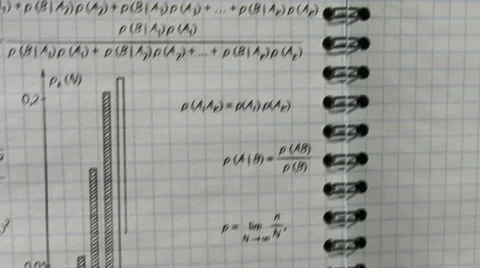 )+p(B|A₂)p(A₂)+p(B|A₃)p(A₃)+...+p(B|Aₖ)p(Aₖ)
p(B|A₁)p(A₁)
p(B|A₁)p(A₁)+p(B|A₂)p(A₂)+...+p(B|Aₖ)p(Aₖ)
0,2
p(AᵢAₖ)=p(Aᵢ)p(Aₖ)
p(A|B)=p(AB)/p(B)
p=lim N→∞ n/N,